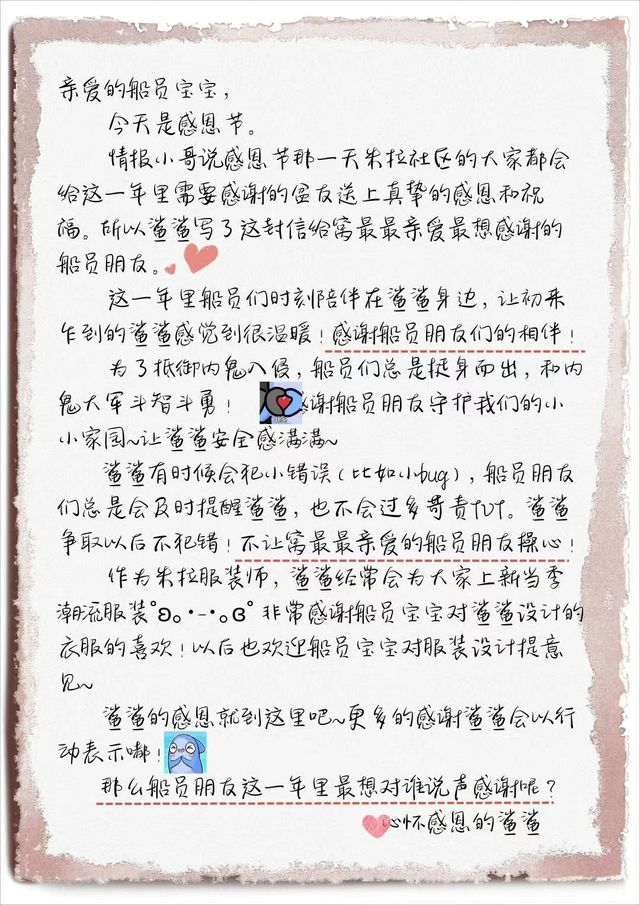 亲爱的船员宝宝，
今天是感恩节。
情报小哥说感恩节那一天米拉社区的大家都会
给这一年里需要感谢的盆友送上真挚的感恩和祝
福。所以鲨鲨写了这封信给窝最最亲爱最想感谢的
船员朋友。
这一年里船员们时刻陪伴在鲨鲨身边，让初来
乍到的鲨鲨感觉到很温暖！感谢船员朋友们的相伴！
为了抵御内鬼入侵，船员们总是挺身而出，和内
鬼大军斗智斗勇！感谢船员朋友守护我们的小
小家园~让鲨鲨安全感满满~
鲨鲨有时候会犯小错误（比如小bug），船员朋友
们总是会及时提醒鲨鲨，也不会过多苛责TUT。鲨鲨
争取以后不犯错！不让窝最最亲爱的船员朋友操心！
作为米拉服装师，鲨鲨经常会为大家上新当季
潮流服装°ʚ｡･-･｡ɞ° 非常感谢船员宝宝对鲨鲨设计的
衣服的喜欢！以后也欢迎船员宝宝对服装设计提意
见~
鲨鲨的感恩就到这里吧~更多的感谢鲨鲨会以行
动表示嘟！
那么船员朋友这一年里最想对谁说声感谢呢？
心怀感恩的鲨鲨